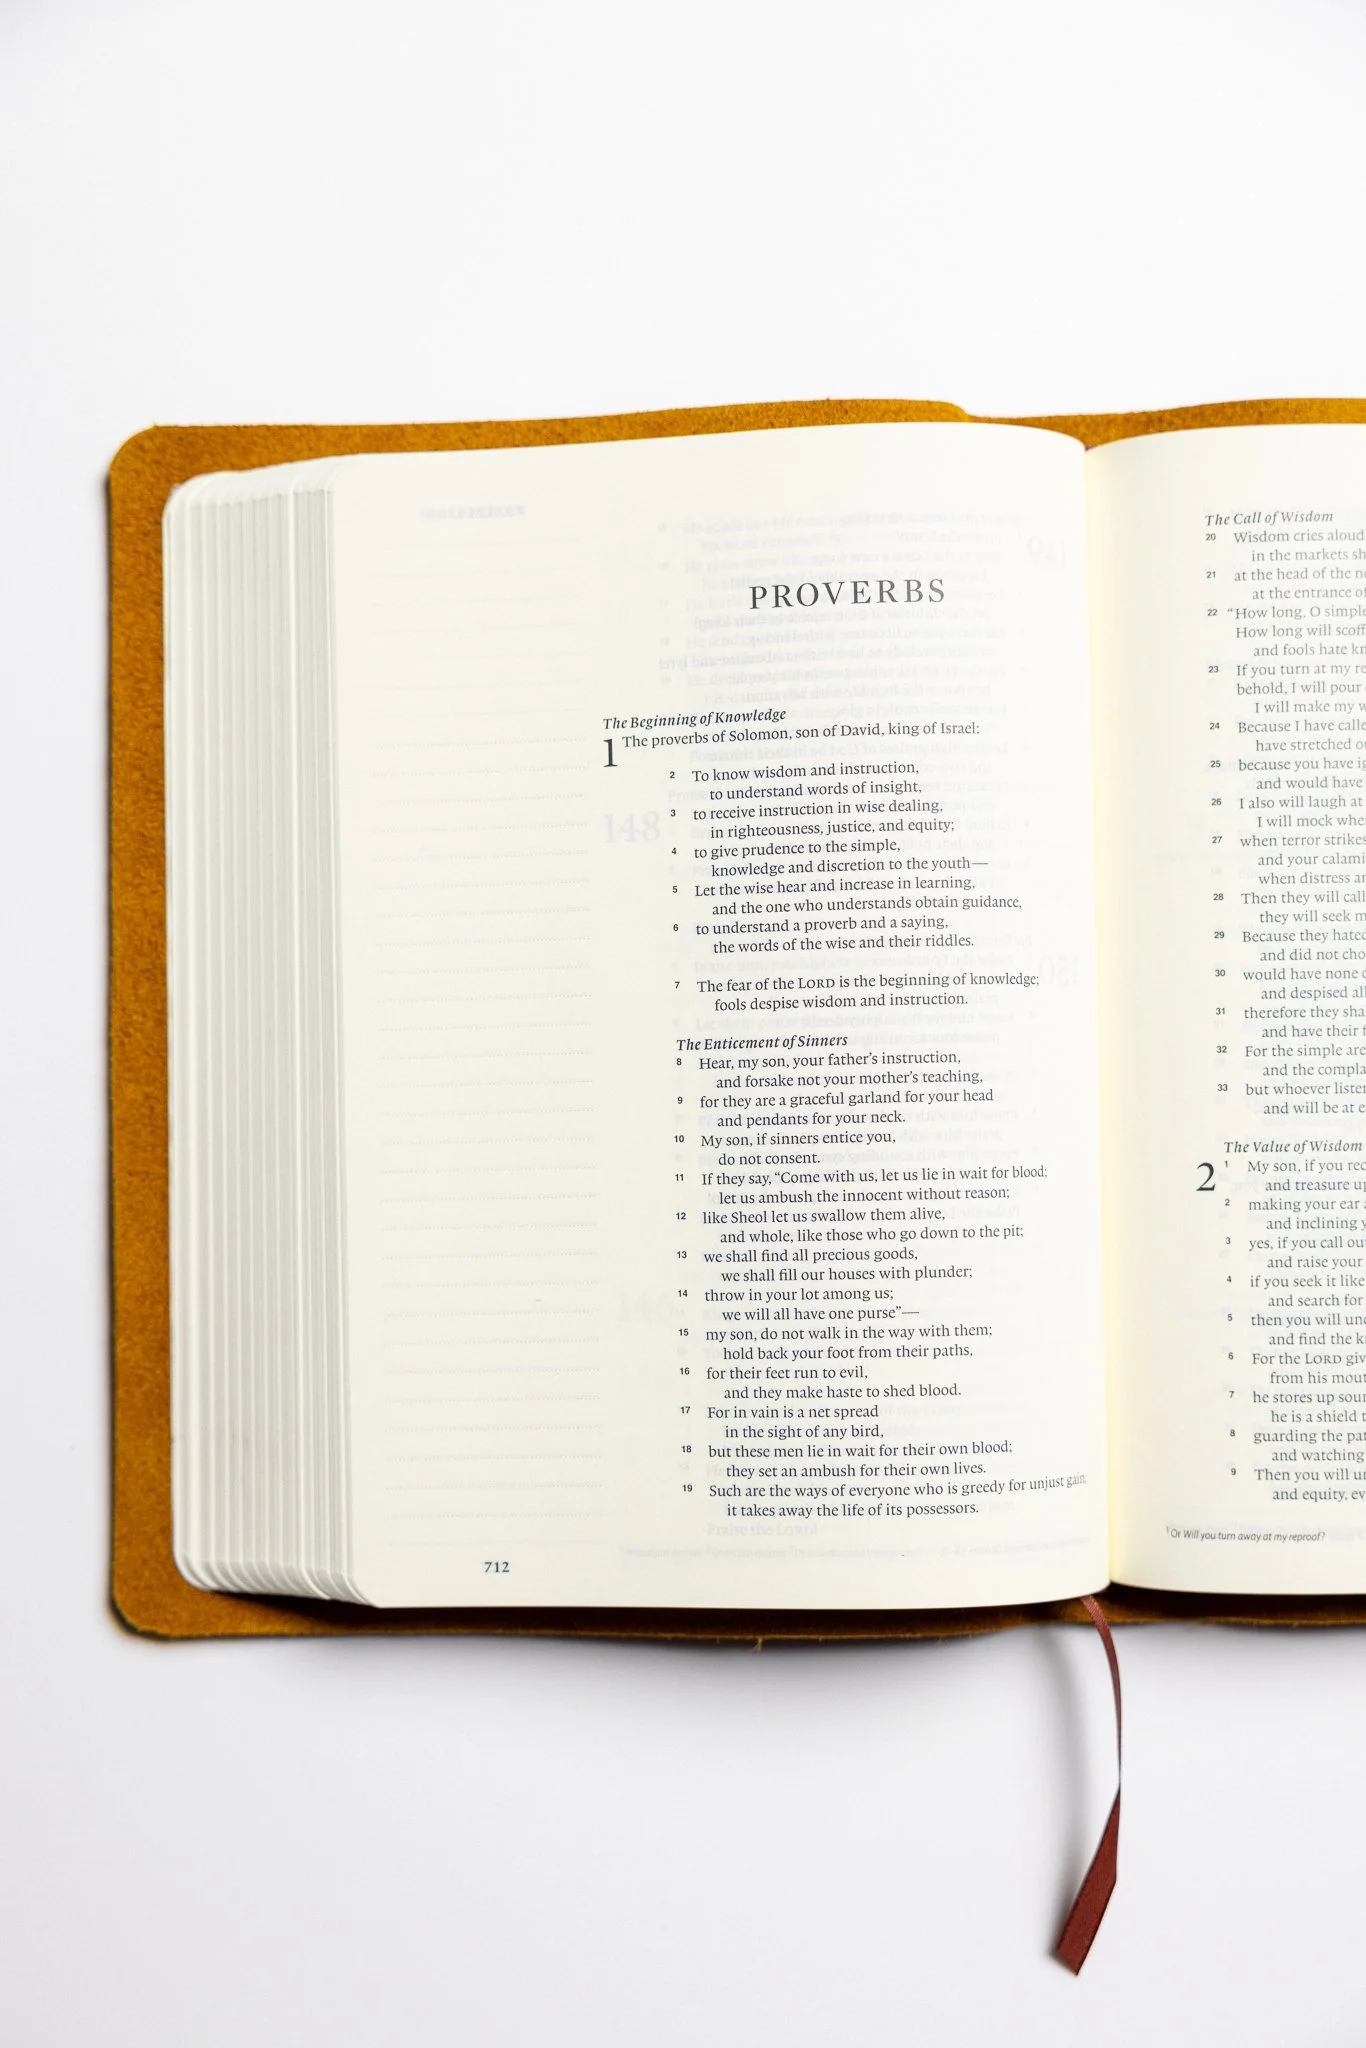 PROVERBS
The Beginning of Knowledge
1 The proverbs of Solomon, son of David, king of Israel:
2 To know wisdom and instruction,
to understand words of insight,
3 to receive instruction in wise dealing,
in righteousness, justice, and equity;
4 to give prudence to the simple,
knowledge and discretion to the youth—
5 Let the wise hear and increase in learning,
and the one who understands obtain guidance,
6 to understand a proverb and a saying,
the words of the wise and their riddles.
7 The fear of the LORD is the beginning of knowledge;
fools despise wisdom and instruction.
The Enticement of Sinners
8 Hear, my son, your father's instruction,
and forsake not your mother's teaching,
9 for they are a graceful garland for your head
and pendants for your neck.
10 My son, if sinners entice you,
do not consent.
11 If they say, "Come with us, let us lie in wait for blood;
let us ambush the innocent without reason;
12 like Sheol let us swallow them alive,
and whole, like those who go down to the pit;
13 we shall find all precious goods,
we shall fill our houses with plunder;
14 throw in your lot among us;
we will all have one purse"—
15 my son, do not walk in the way with them;
hold back your foot from their paths,
16 for their feet run to evil,
and they make haste to shed blood.
17 For in vain is a net spread
in the sight of any bird,
18 but these men lie in wait for their own blood;
they set an ambush for their own lives.
19 Such are the ways of everyone who is greedy for unjust gain;
it takes away the life of its possessors.
712
The Call of Wisdom
20 Wisdom cries aloud
in the markets
21 at the head of the
at the entrance of
22 "How long, O simple
How long will
and fools hate
23 If you turn at my
behold, I will pour
I will make my
24 Because I have
have stretched
25 because you have
and would have
26 I also will laugh at
I will mock
27 when terror strikes
and your
when distress
28 Then they will call
they will seek
29 Because they hated
and did not
30 would have none
and despised all
31 therefore they
and have their
32 For the simple are
and the
33 but whoever
and will be at
The Value of Wisdom
2 1 My son, if you
and treasure up
2 making your ear
and inclining
3 yes, if you call
and raise your
4 if you seek it like
and search for
5 then you will
and find the
6 For the LORD
from his
7 he stores up
he is a shield
8 guarding the
and watching
9 Then you will
and equity,
1 Or Will you turn away at my reproof?